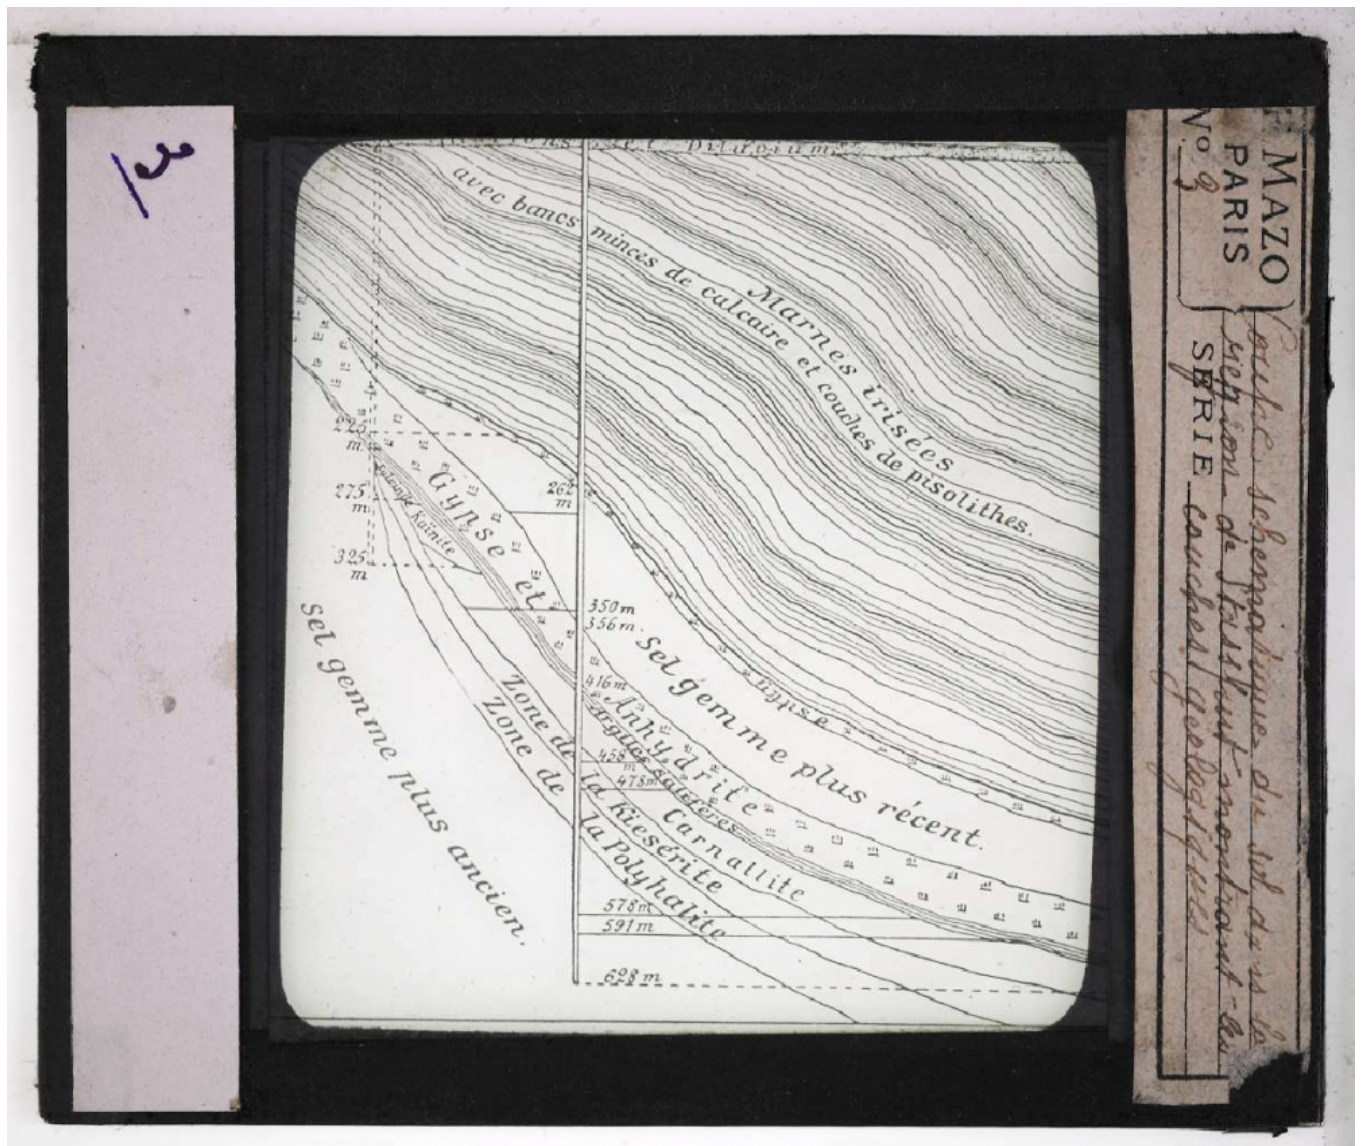 Diluvium
avec bancs minces de calcaire et couches de pisolithes.
Marnes irisées
225
m.
275
m
325
m
262
m
Gypse et
Anhydrite
Kaïnite
350m
356m.
416m
Sel gemme plus récent.
Gypse
Argiles salifères
458
m
478m
Carnallite
Zone de la Kiesérite
Zone de la Polyhalite
578m
591m
628 m
Sel gemme plus ancien.
MAZO
PARIS
No. 9
SERIE
Coupe schématique du sol dans la
région de Stassfurt montrant les
couches géologiques